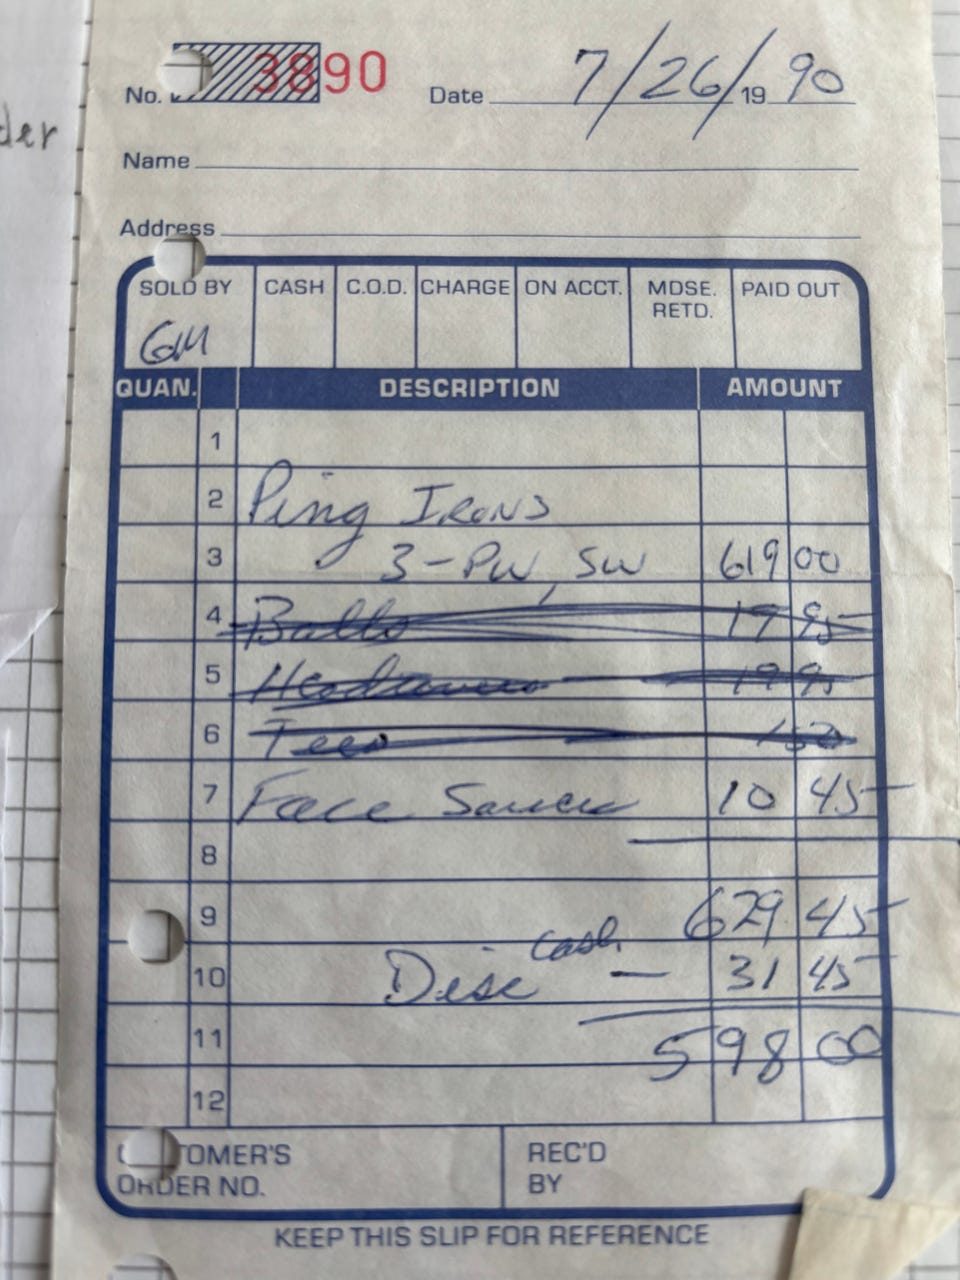 der
No. 3890 Date 7/26/1990
Name
Address
SOLD BY CASH C.O.D. CHARGE ON ACCT. MDSE. RETD. PAID OUT
GM
QUAN. DESCRIPTION AMOUNT
1
2 Ping IRONS
3 3-PW, SW 619 00
4 Balls 19 95
5 19 95
6 Tees 1 50
7 Face Saver 10 45
8
9 629 45
cash
10 Disc — 31 45
11 598 00
12
CUSTOMER'S ORDER NO. REC'D BY
KEEP THIS SLIP FOR REFERENCE